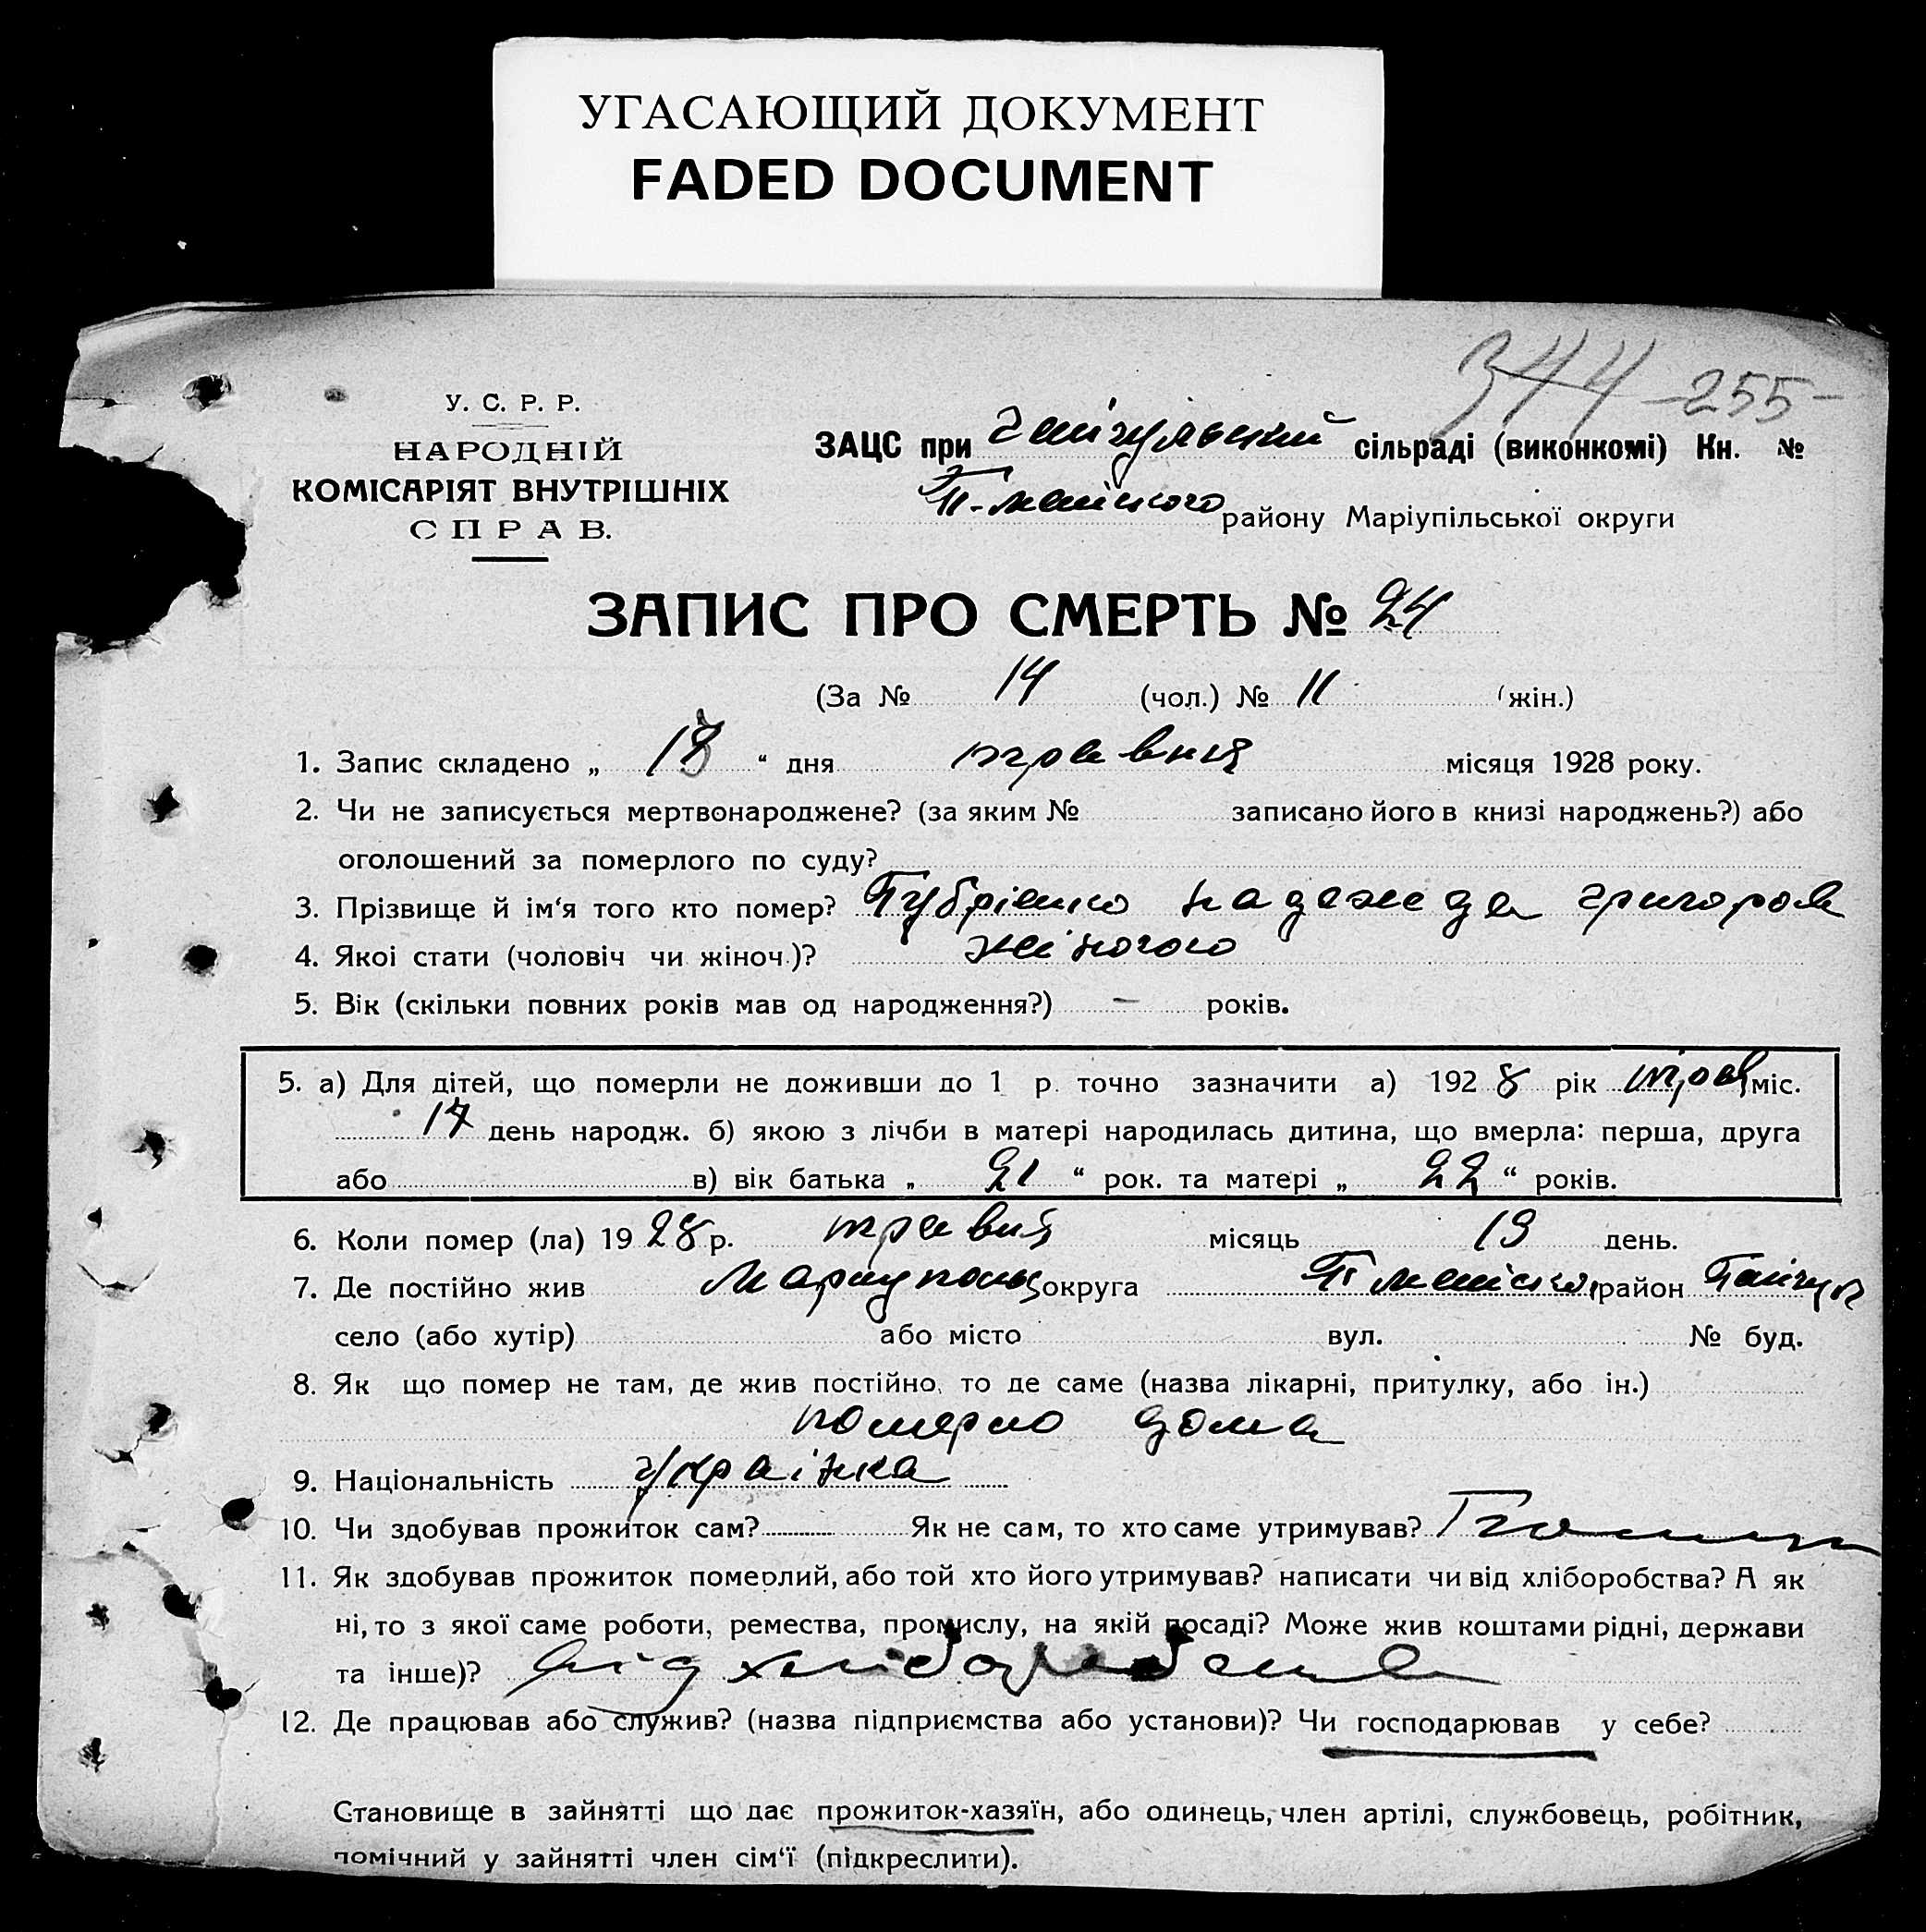 УГАСАЮЩИЙ ДОКУМЕНТ
FADED DOCUMENT
344 -255-
У. С. Р. Р.
НАРОДНІЙ
КОМІСАРІЯТ ВНУТРІШНІХ
СПРАВ.
ЗАЦС при сільраді (виконкомі) Кн. №
району Маріупільської округи
ЗАПИС ПРО СМЕРТЬ № 24
(За № 14 (чол.) № 11 (жін.)
1. Запис складено „ 18 “ дня травня місяця 1928 року.
2. Чи не записується мертвонароджене? (за яким № записано його в книзі народжень?) або
оголошений за померлого по суду?
3. Прізвище й ім‘я того кто помер? Надежда Григоров
4. Якоі стати (чоловіч чи жіноч.)? жіночого
5. Вік (скільки повних років мав од народження?) – років.
5. а) Для дітей, що померли не доживши до 1 р. точно зазначити а) 1928 рік трав міс.
17 день народж. б) якою з лічби в матері народилась дитина, що вмерла: перша, друга
або в) вік батька „ 21 “ рок. та матері „ 22 “ років.
6. Коли помер (ла) 1928 р. травня місяць день.
7. Де постійно жив округа район
село (або хутір) або місто вул. № буд.
8. Як що помер не там, де жив постійно, то де саме (назва лікарні, притулку, або ін.)
померло дома
9. Національність украінка
10. Чи здобував прожиток сам? Як не сам, то хто саме утримував?
11. Як здобував прожиток померлий, або той хто його утримував? написати чи від хліборобства? А як
ні, то з якої саме роботи, ремества, промислу, на якій посаді? Може жив коштами рідні, держави
та інше)? від хліборобства
12. Де працював або служив? (назва підприємства або установи)? Чи господарював у себе?
Становище в зайнятті що дає прожиток-хазяїн, або одинець, член артілі, службовець, робітник,
помічний у зайнятті член сім‘ї (підкреслити).